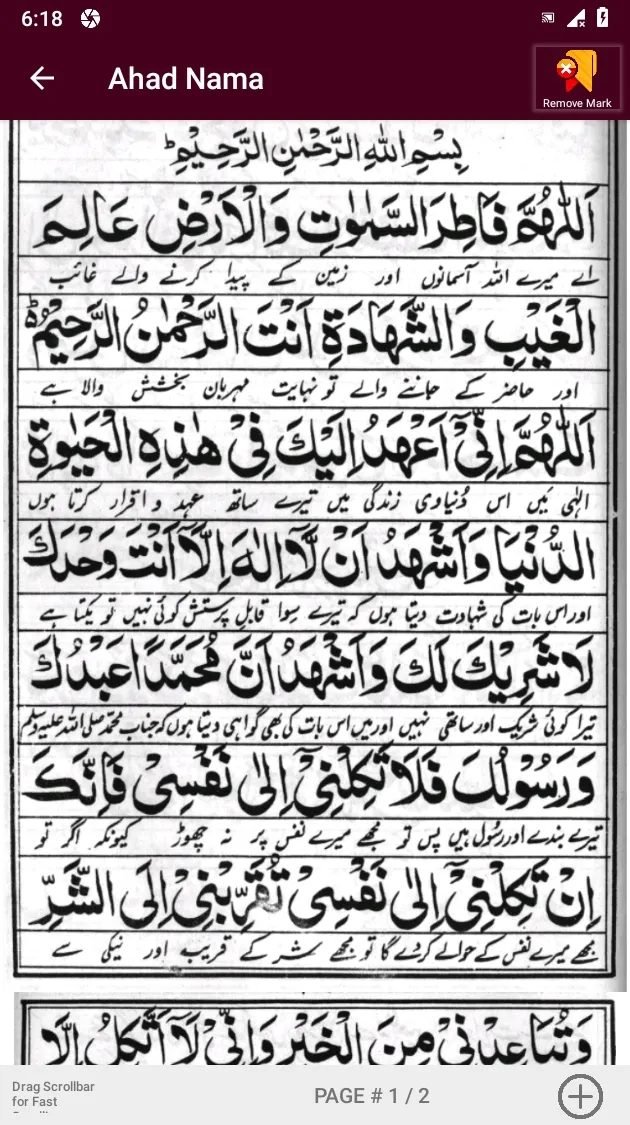 6:18
Ahad Nama
Remove Mark
بِسْمِ اللهِ الرَّحْمٰنِ الرَّحِيْمِ ؕ
اَللّٰهُمَّ فَاطِرَ السَّمٰوٰتِ وَالْاَرْضِ عَالِمَ
اے میرے اللہ آسمانوں اور زمین کے پیدا کرنے والے غائب
الْغَيْبِ وَالشَّهَادَةِ اَنْتَ الرَّحْمٰنُ الرَّحِيْمُ ؕ
اور حاضر کے جاننے والے تو نہایت مہربان بخشش والا ہے
اَللّٰهُمَّ اِنِّيْٓ اَعْهَدُ اِلَيْكَ فِيْ هٰذِهِ الْحَيٰوةِ
الہٰی میں اس دُنیاوی زندگی میں تیرے ساتھ عہد و اقرار کرتا ہوں
الدُّنْيَا وَاَشْهَدُ اَنْ لَّآ اِلٰهَ اِلَّآ اَنْتَ وَحْدَكَ
اور اس بات کی شہادت دیتا ہوں کہ تیرے سوا قابلِ پرستش کوئی نہیں تو یکتا ہے
لَا شَرِيْكَ لَكَ وَاَشْهَدُ اَنَّ مُحَمَّدًا عَبْدُكَ
تیرا کوئی شریک اور ساتھی نہیں اور میں اس بات کی بھی گواہی دیتا ہوں کہ جناب محمد صلی اللہ علیہ وسلم
وَرَسُوْلُكَ فَلَا تَكِلْنِيْٓ اِلٰى نَفْسِيْ فَاِنَّكَ
تیرے بندے اور رسُول ہیں پس تو مجھے میرے نفس پر نہ چھوڑ کیونکہ اگر تو
اِنْ تَكِلْنِيْٓ اِلٰى نَفْسِيْ تُقَرِّبْنِيْ اِلَى الشَّرِّ
مجھے میرے نفس کے حوالے کر دے گا تو مجھے شر کے قریب اور نیکی سے
وَتُبَاعِدْنِيْ مِنَ الْخَيْرِ وَاِنِّيْ لَآ اَتَّكِلُ اِلَّا
Drag Scrollbar
for Fast
PAGE # 1 / 2